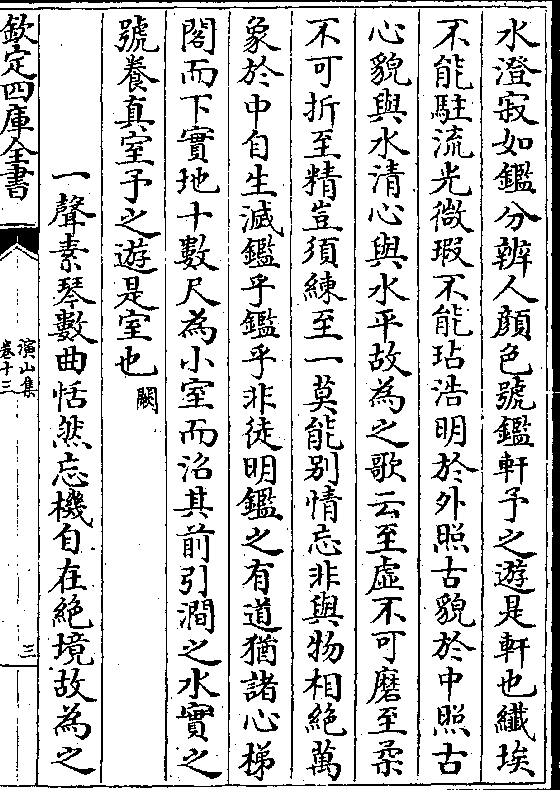 水澄寂如鑑分辨人顔色號鑑軒予之遊是軒也纎埃
不能駐流光微瑕不能玷浩明於外照古貌於中照古
心貌與水清心與水平故為之歌云至虛不可磨至柔
不可折至精豈須練至一莫能別情忘非與物相絶萬
象於中自生滅鑑乎鑑乎非徒明鑑之有道猶諸心梯
閣而下實地十數尺為小室而沼其前引澗之水實之
號養真室予之遊是室也闕
一聲素琴數曲恬然忘機自在絶境故為之
欽定四庫全書
演山集
卷十三
三